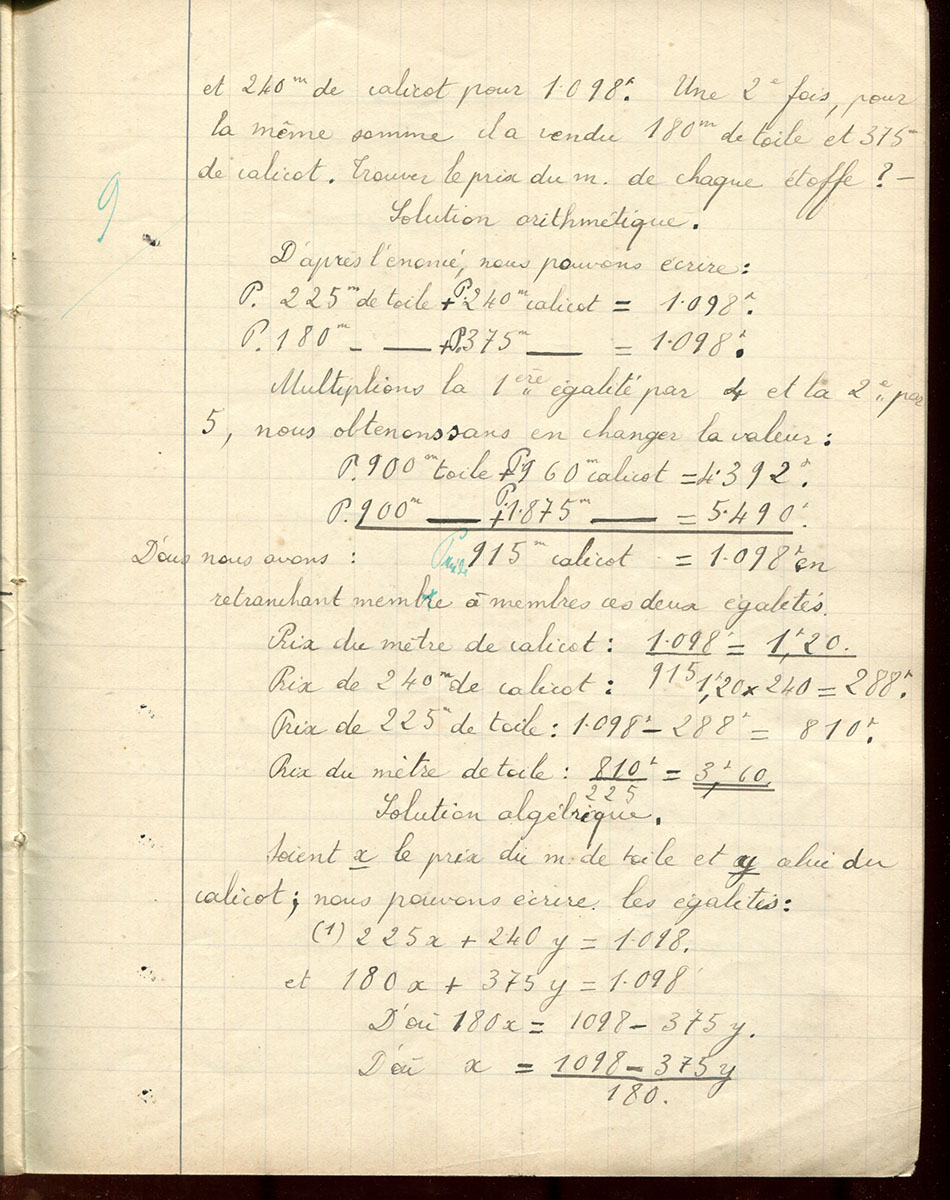 et 240ᵐ de calicot pour 1.098ᶠ. Une 2ᵉ fois, pour
la même somme il a vendu 180ᵐ de toile et 375ᵐ
de calicot. Trouver le prix du m. de chaque étoffe ? —
9
Solution arithmétique.
D'après l'énoncé, nous pouvons écrire :
P. 225ᵐ de toile + P. 240ᵐ calicot = 1.098ᶠ.
P. 180ᵐ — — + P. 375ᵐ — = 1.098ᶠ.
Multiplions la 1ᵉʳᵉ égalité par 4 et la 2ᵉ " par
5, nous obtenons sans en changer la valeur :
P. 900ᵐ toile + P. 960ᵐ calicot = 4.392ᶠ.
P. 900ᵐ — + P. 1.875ᵐ — = 5.490ᶠ.
D'où nous avons : Prix de 915ᵐ calicot = 1.098ᶠ en
retranchant membre à membres ces deux égalités.
Prix du mètre de calicot : 1.098ᶠ / 915 = 1,ᶠ20.
Prix de 240ᵐ de calicot : 1,ᶠ20 x 240 = 288ᶠ.
Prix de 225ᵐ de toile : 1.098ᶠ - 288ᶠ = 810ᶠ.
Prix du mètre de toile : 810ᶠ / 225 = 3,ᶠ60.
Solution algébrique.
Soient x le prix du m. de toile et y celui du
calicot ; nous pouvons écrire les égalités :
(1) 225x + 240y = 1.098.
et 180x + 375y = 1.098
D'où 180x = 1098 - 375y.
D'où x = 1098 - 375y
180.